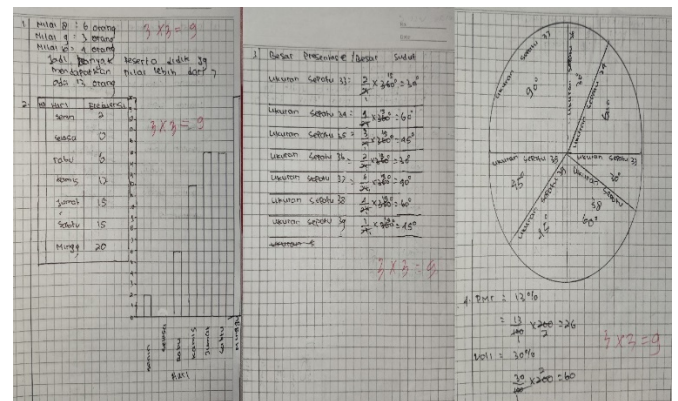 1 Nilai 8 : 6 orang
Nilai 9 : 3 orang
Nilai 10 : 4 orang
Jadi, banyak peserta didik yg
mendapatkan nilai lebih dari 7
ada 13 orang
3 x 3 = 9
2. Hari Frekuensi
Senin 2
Selasa 0
rabu 6
kamis 12
Jumat 15
Sabtu 15
Minggu 20
3 x 3 = 9
senin
selasa
Rabu
kamis
Jumat
Sabtu
minggu
HARI
No.
Date
3 Besar Presentase / Besar Sudut
ukuran sepatu 33: 2/24 x 360° = 30°
ukuran sepatu 34: 4/24 x 360° = 60°
ukuran sepatu 35 = 3/24 x 360° = 45°
ukuran sepatu 36: 2/24 x 360° = 30°
ukuran sepatu 37: 6/24 x 360° = 90°
ukuran sepatu 38 4/24 x 360° = 60°
ukuran sepatu 39 3/24 x 360° = 45°
3 x 3 = 9
ukuran sepatu 37
90°
ukuran sepatu
30°
ukuran sepatu 34
60°
ukuran sepatu
45°
ukuran sepatu 39
45°
ukuran sepatu 33
30°
ukuran sepatu
38
60°
4. PMR = 13%
= 13/100 x 200 = 26
Voli = 30%
30/100 x 200 = 60
3 x 3 = 9